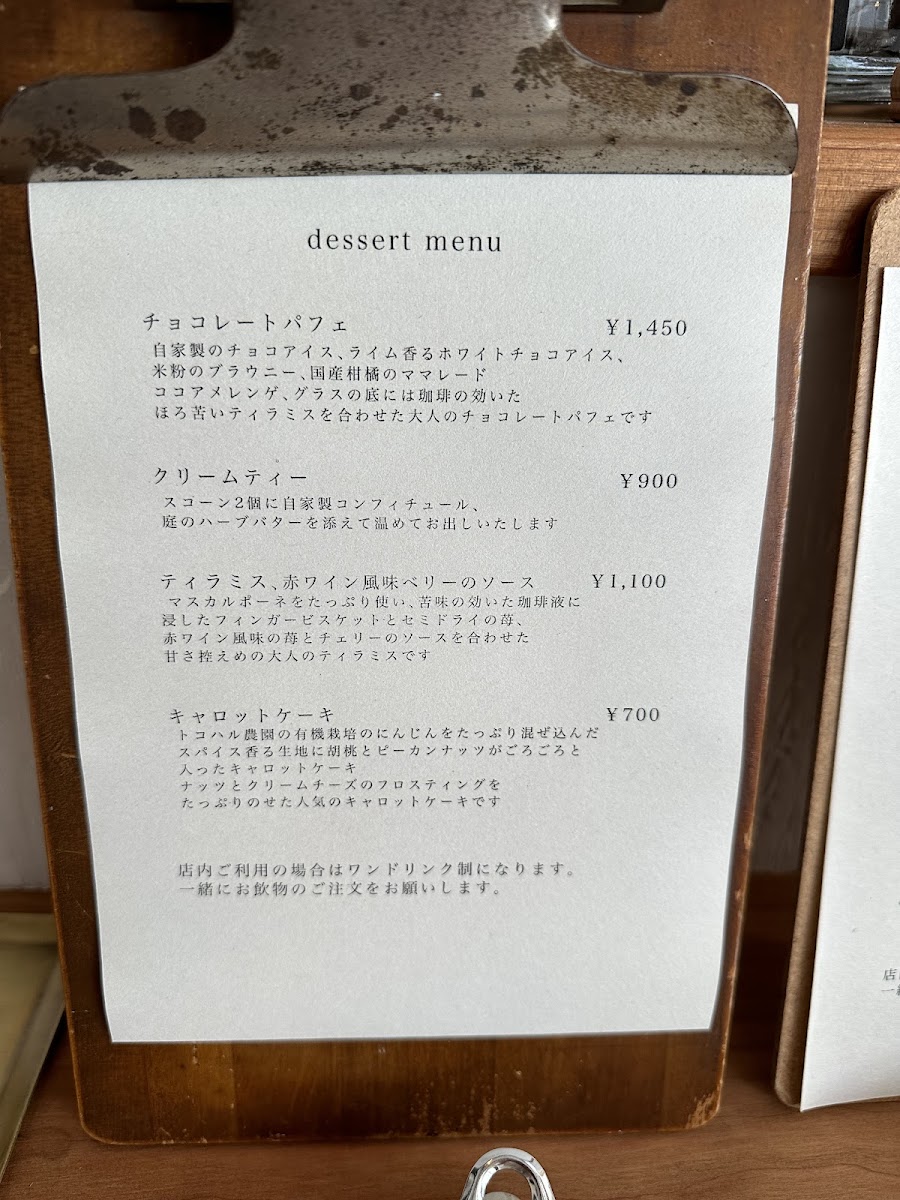 dessert menu
チョコレートパフェ ¥1,450
自家製のチョコアイス、ライム香るホワイトチョコアイス、
米粉のブラウニー、国産柑橘のママレード
ココアメレンゲ、グラスの底には珈琲の効いた
ほろ苦いティラミスを合わせた大人のチョコレートパフェです
クリームティー ¥900
スコーン2個に自家製コンフィチュール、
庭のハーブバターを添えて温めてお出しいたします
ティラミス、赤ワイン風味ベリーのソース ¥1,100
マスカルポーネをたっぷり使い、苦味の効いた珈琲液に
浸したフィンガービスケットとセミドライの苺、
赤ワイン風味の苺とチェリーのソースを合わせた
甘さ控えめの大人のティラミスです
キャロットケーキ ¥700
トコハル農園の有機栽培のにんじんをたっぷり混ぜ込んだ
スパイス香る生地に胡桃とピーカンナッツがごろごろと
入ったキャロットケーキ
ナッツとクリームチーズのフロスティングを
たっぷりのせた人気のキャロットケーキです
店内ご利用の場合はワンドリンク制になります。
一緒にお飲物のご注文をお願いします。
店
一緒